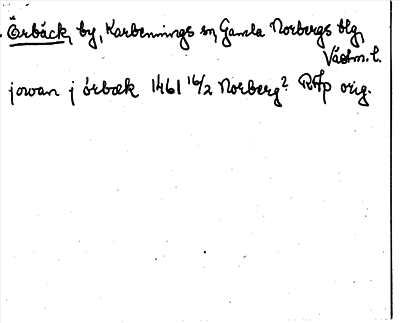 Örbäck, by, Karbennings sn, Gamla Norbergs blg,
Västm. l.
jowan j örbæk 1461 16/2 Norberg? RAp orig.